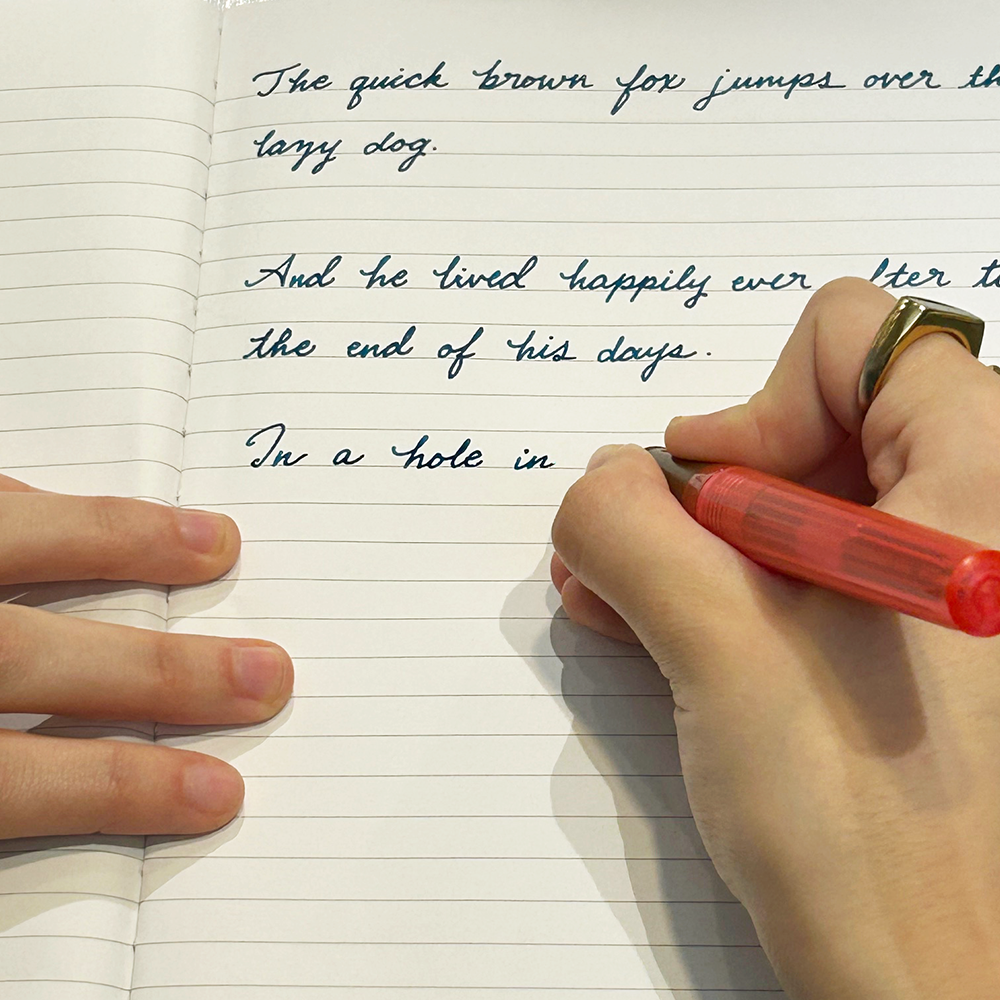 The quick brown fox jumps over
lazy dog.
And he lived happily ever
the end of his days.
In a hole in